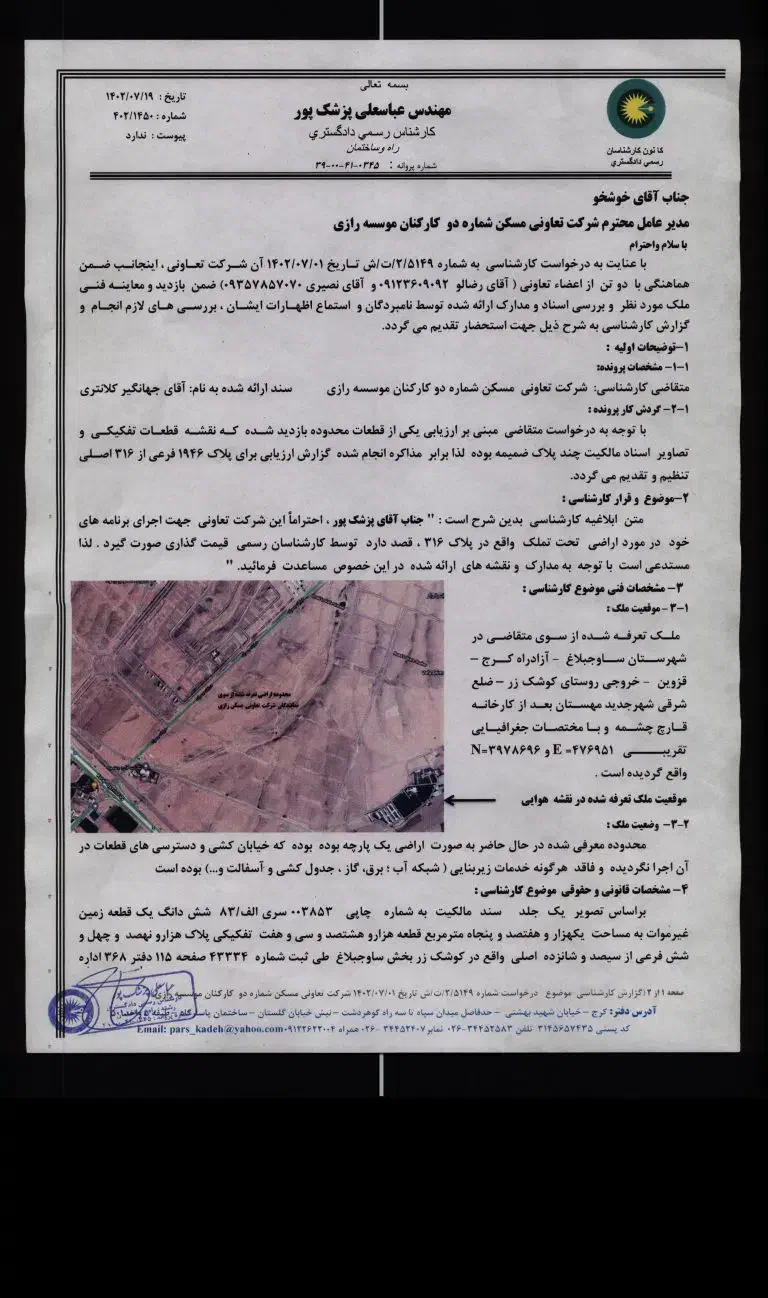 بسمه تعالی
مهندس عباسعلی پزشک پور
کارشناس رسمي دادگستري
راه وساختمان
شماره پروانه : ۰۳۴۵-۴۱-۰۰-۳۹
تاریخ : ۱۴۰۲/۰۷/۱۹
شماره : ۴۰۲/۱۴۵۰
پیوست : ندارد
کانون کارشناسان
رسمی دادگستری
جناب آقای خوشخو
مدیر عامل محترم شرکت تعاونی مسکن شماره دو کارکنان موسسه رازی
با سلام واحترام
با عنایت به درخواست کارشناسی به شماره ۲/۵۱۴۹/ت/ش تاریخ ۱۴۰۲/۰۷/۰۱ آن شرکت تعاونی ، اینجانب ضمن
هماهنگی با دو تن از اعضاء تعاونی ( آقای رضالو ۰۹۱۲۳۶۰۹۰۹۲ و آقای نصیری ۰۹۳۵۷۸۵۷۰۷۰) ضمن بازدید و معاینه فنی
ملک مورد نظر و بررسی اسناد و مدارک ارائه شده توسط نامبردگان و استماع اظهارات ایشان ، بررسی های لازم انجام و
گزارش کارشناسی به شرح ذیل جهت استحضار تقدیم می گردد.
۱-توضیحات اولیه :
۱-۱- مشخصات پرونده:
متقاضی کارشناسی: شرکت تعاونی مسکن شماره دو کارکنان موسسه رازی سند ارائه شده به نام: آقای جهانگیر کلانتری
۱-۲- گردش کار پرونده :
با توجه به درخواست متقاضی مبنی بر ارزیابی یکی از قطعات محدوده بازدید شده که نقشه قطعات تفکیکی و
تصاویر اسناد مالکیت چند پلاک ضمیمه بوده لذا برابر مذاکره انجام شده گزارش ارزیابی برای پلاک ۱۹۴۶ فرعی از ۳۱۶ اصلی
تنظیم و تقدیم می گردد.
۲-موضوع و قرار کارشناسی :
متن ابلاغیه کارشناسی بدین شرح است : " جناب آقای پزشک پور ، احتراماً این شرکت تعاونی جهت اجرای برنامه های
خود در مورد اراضی تحت تملک واقع در پلاک ۳۱۶ ، قصد دارد توسط کارشناسان رسمی قیمت گذاری صورت گیرد . لذا
مستدعی است با توجه به مدارک و نقشه های ارائه شده در این خصوص مساعدت فرمائید. "
۳- مشخصات فنی موضوع کارشناسی :
۳-۱ - موقعیت ملک :
ملک تعرفه شده از سوی متقاضی در
شهرستان ساوجبلاغ - آزادراه کرج -
قزوین - خروجی روستای کوشک زر - ضلع
شرقی شهرجدید مهستان بعد از کارخانه
قارچ چشمه و با مختصات جغرافیایی
تقریبی E =۴۷۶۹۵۱ و N=۳۹۷۸۶۹۶
واقع گردیده است .
محدوده اراضی تعرفه شده از سوی
نمایندگان شرکت تعاونی مسکن رازی
موقعیت ملک تعرفه شده در نقشه هوایی
۳-۲- وضعیت ملک :
محدوده معرفی شده در حال حاضر به صورت اراضی یک پارچه بوده بوده که خیابان کشی و دسترسی های قطعات در
آن اجرا نگردیده و فاقد هرگونه خدمات زیربنایی ( شبکه آب ؛ برق، گاز ، جدول کشی و آسفالت و...) بوده است
۴- مشخصات قانونی و حقوقی موضوع کارشناسی :
براساس تصویر یک جلد سند مالکیت به شماره چاپی ۰۰۳۸۵۳ سری الف/۸۳ شش دانگ یک قطعه زمین
غیرموات به مساحت یکهزار و هفتصد و پنجاه مترمربع قطعه هزارو هشتصد و سی و هفت تفکیکی پلاک هزارو نهصد و چهل و
شش فرعی از سیصد و شانزده اصلی واقع در کوشک زر بخش ساوجبلاغ طی ثبت شماره ۴۳۳۳۴ صفحه ۱۱۵ دفتر ۳۶۸ اداره
صفحه ۱ از ۲ |گزارش کارشناسی موضوع درخواست شماره ۲/۵۱۴۹/ت/ش تاریخ ۱۴۰۲/۰۷/۰۱ شرکت تعاونی مسکن شماره دو کارکنان موسسه رازی
آدرس دفتر: کرج - خیابان شهید بهشتی - حدفاصل میدان سپاه تا سه راه گوهردشت - نبش خیابان گلستان - ساختمان
کد پستی ۳۱۴۵۶۵۷۴۳۵ تلفن ۳۴۴۵۲۵۸۳-۰۲۶ نمابر ۳۴۴۵۲۴۰۷ -۰۲۶ همراه ۰۹۱۲۲۶۲۲۰۰۴ Email: pars_kadeh@yahoo.com